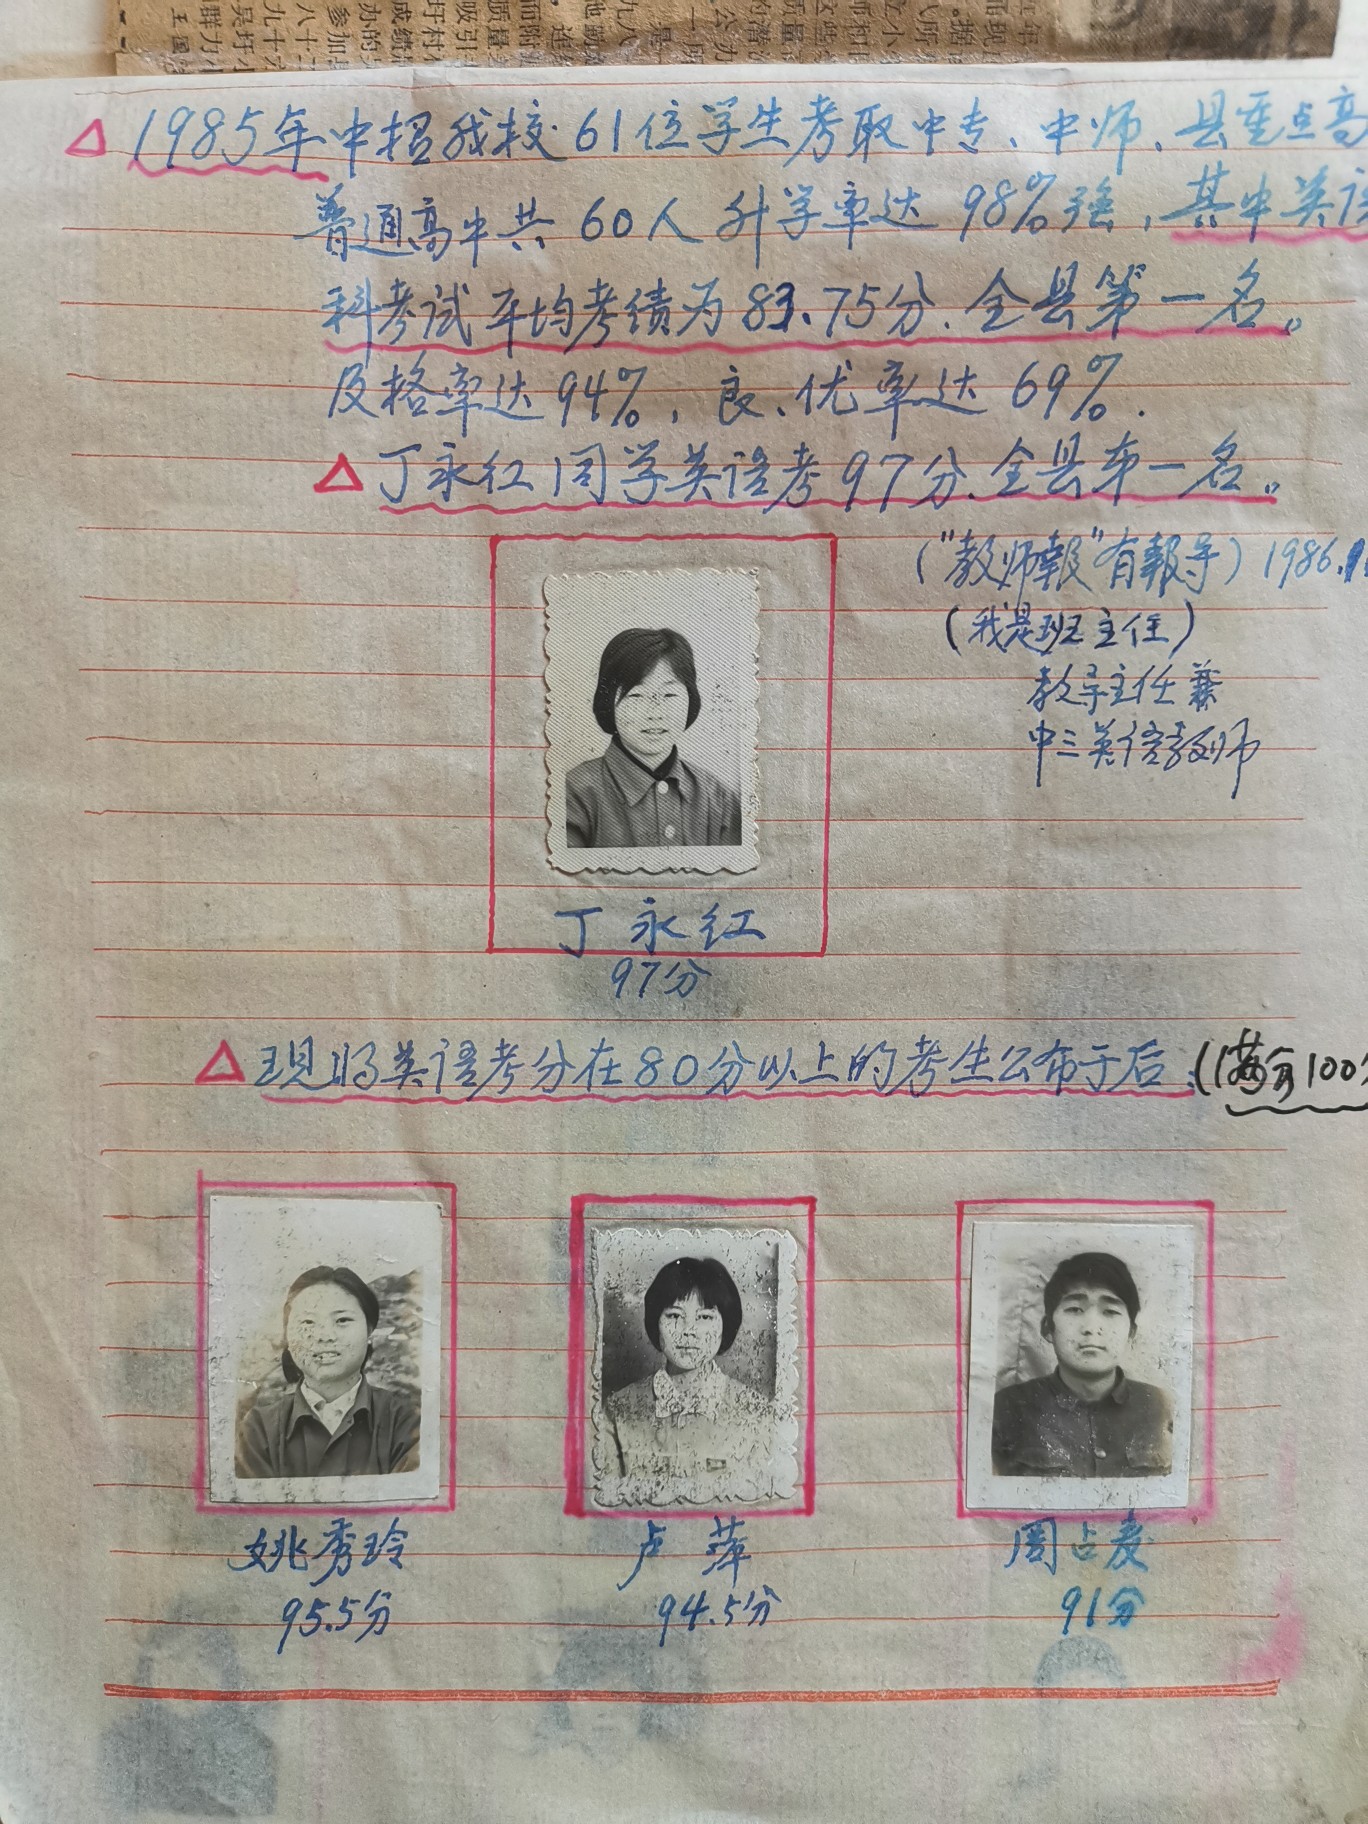 △1985年中招我校61位学生考取中专、中师、县重点高
普通高中共60人升学率达98%强，其中英语
科考试平均考绩为83.75分.全县第一名。
及格率达94%，良、优率达69%.
△丁永红同学英语考97分.全县第一名。
（"教师報"有報导）1986.
（我是班主任）
教导主任兼
中三英语教师
丁永红
97分
△现将英语考分在80分以上的考生公布于后：(满分100分
姚秀玲
95.5分
卢萍
94.5分
周占麦
91分